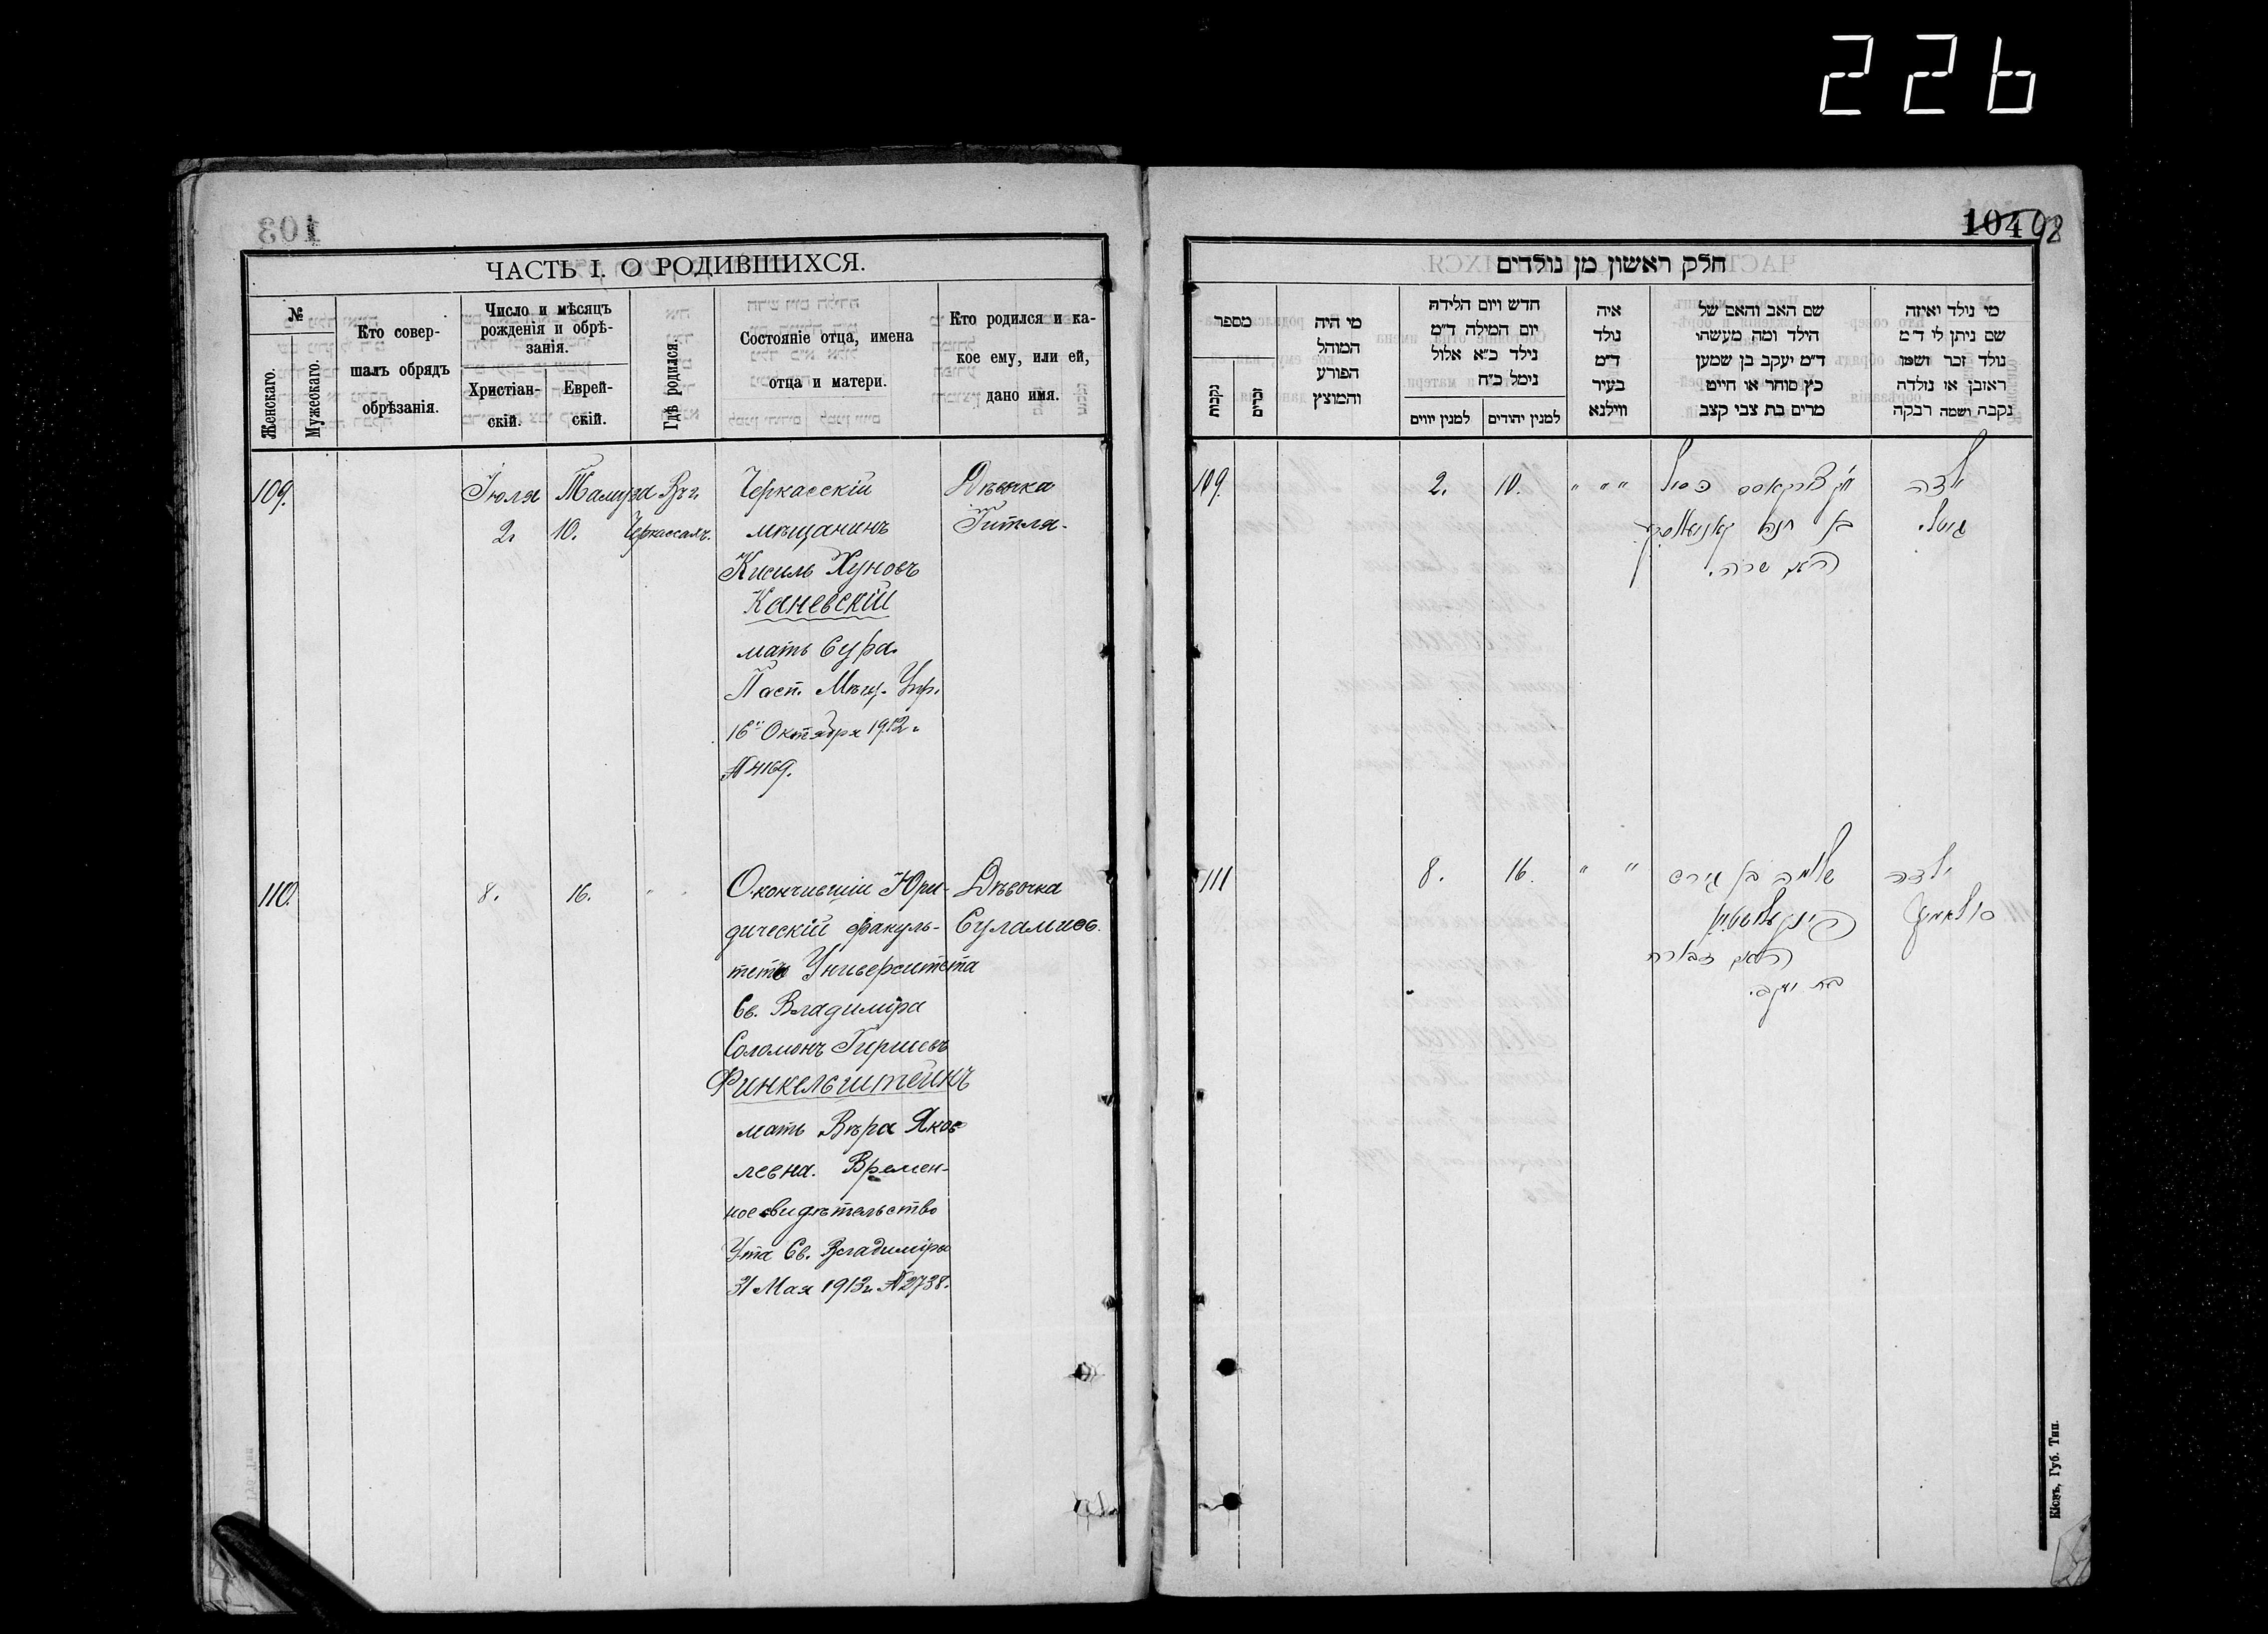 226
103
ЧАСТЬ I. О РОДИВШИХСЯ.
№
Женскаго.
Мужескаго.
Кто совер-
шалъ обрядъ
обрѣзанія.
Число и мѣсяцъ
рожденія и обрѣ-
занія.
Христіан-
скій.
Еврей-
скій.
Гдѣ родился.
Состояніе отца, имена
отца и матери.
Кто родился и ка-
кое ему, или ей,
дано имя.
109. Іюля Тамуза Въ г. Черкасскій Дѣвочка
2. 10. Черкассахъ. мѣщанинъ Гитля.
Кисиль Хуновъ
Каневскій
мать Сура.
Пасп. Мѣщ. Упр.
16 Октября 1912 г.
№ 4169.
110. 8. 16. " Окончившій Юри- Дѣвочка
дическій факуль- Суламиѳь.
тетъ Университета
Св. Владиміра
Соломонъ Гиршевъ
Финкельштейнъ
мать Вѣра Яков-
левна. Времен-
ное свидѣтельство
У-та Св. Владиміра
31 Мая 1913 г. № 2738.
104 98
חלק ראשון מן נולדים
מספר
נקבות
זכרים
מי היה
המוהל
הפורע
והמוצץ
חדש ויום הלידה
יום המילה ד"מ
נילד כ"א אלול
נימל כ"ח
למנין יווים
למנין יהודים
איה
נולד
ד"מ
בעיר
ווילנא
שם האב והאם של
הילד ומה מעשהו
ד"מ יעקב בן שמעון
כץ סוחר או חייט
מרים בת צבי קצב
מי נולד ואיזה
שם ניתן לו ד"מ
נולד זכר ושמו
ראובן או נולדה
נקבה ושמה רבקה
109. 2. 10. " " " טשערקאסס כסיל ילדה
בן חנא קאניעווסקי גיטל.
האם שרה.
111 8. 16. " " שלמה בן גירש ילדה
פינקעלשטיין סולאמיט
האם דבורה
בת יעקב.
Кіевъ, Губ. Тип.